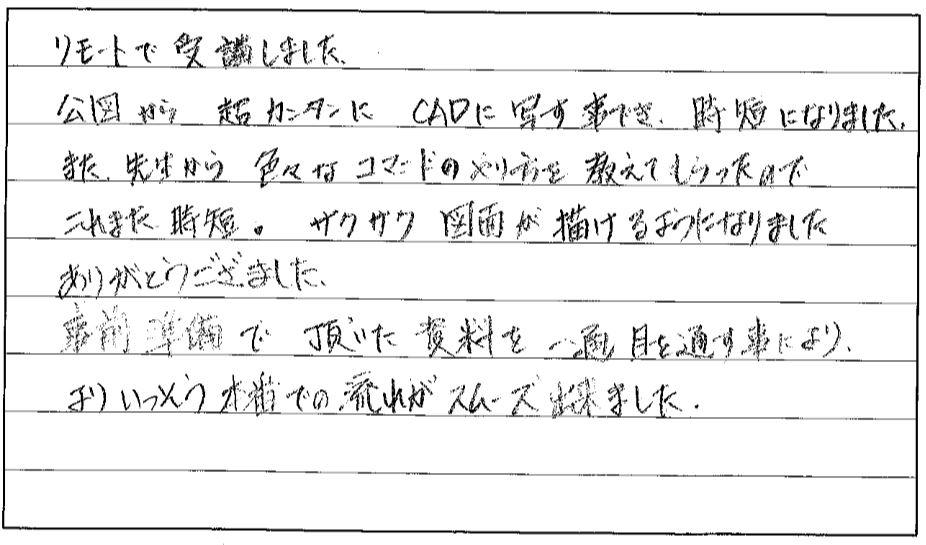 リモートで受講しました。
公図から 超カンタンに CADに写す事でき、時短になりました。
また、先生から 色々な コマンドのやり方を 教えてもらったので
これまた 時短。 サクサク 図面が描けるようになりました
ありがとうございました。
事前準備で 頂いた資料を 一通り目を通す事により、
よりいっそう 本番での流れがスムーズ出来ました。